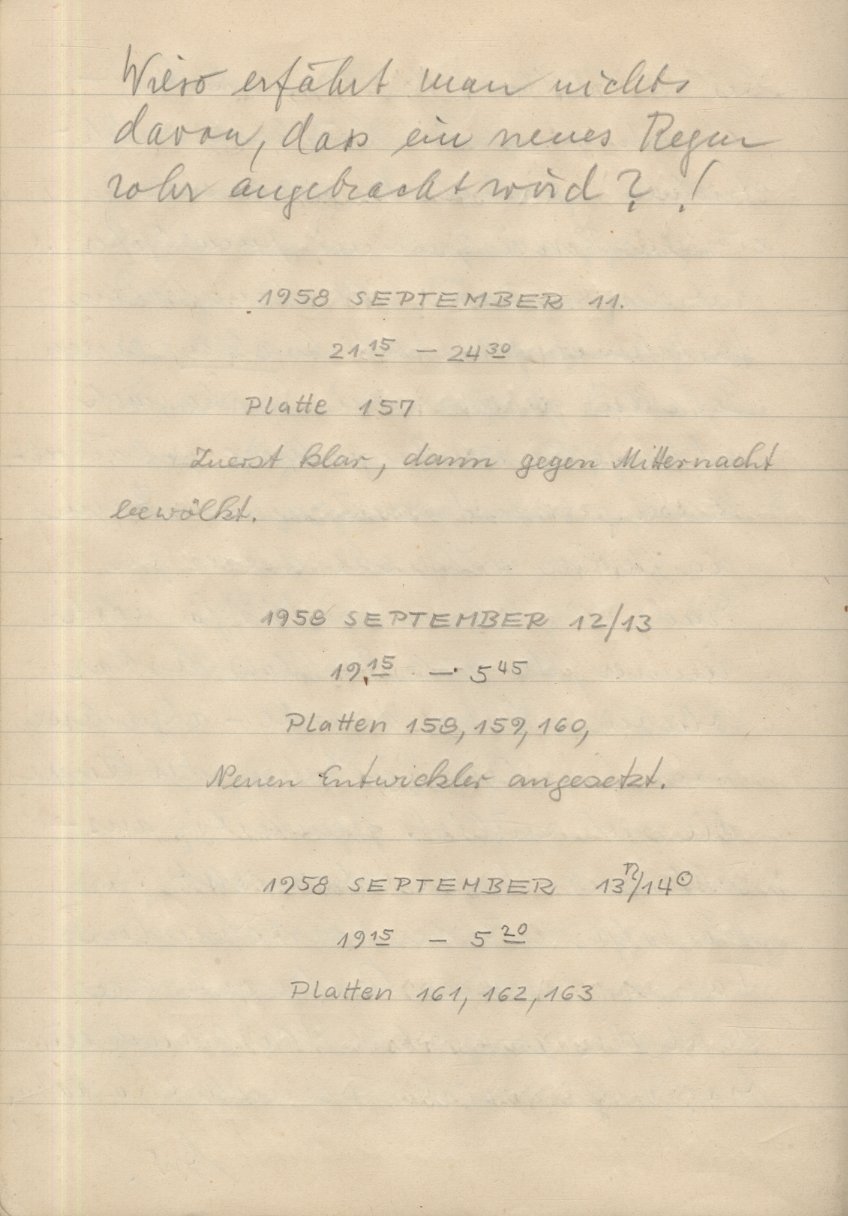 Wieso erfährt man nichts
davon, dass ein neues Regen
rohr angebracht wird?!
1958 SEPTEMBER 11.
21 15 — 24 30
Platte 157
Zuerst klar, dann gegen Mitternacht
bewölkt.
1958 SEPTEMBER 12/13
19 15 — 5 45
Platten 158, 159, 160,
Neuen Entwickler angesetzt.
1958 SEPTEMBER 13♄/14☉
19 15 — 5 20
Platten 161, 162, 163